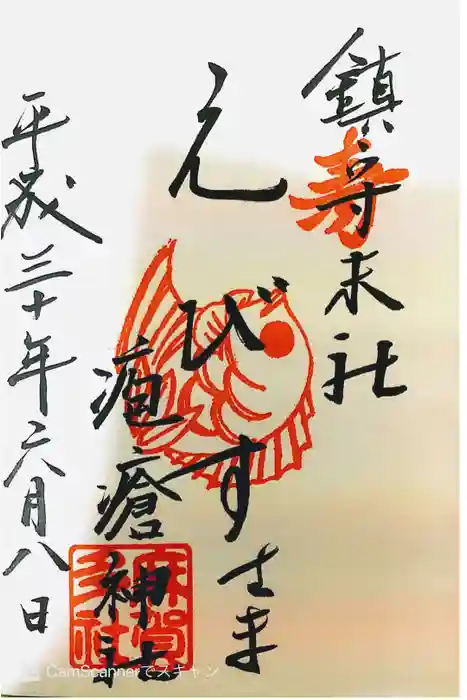 鎮守末社
寿
えびすさま
疱瘡神社
平成三十年六月八日
CamScannerでスキャン